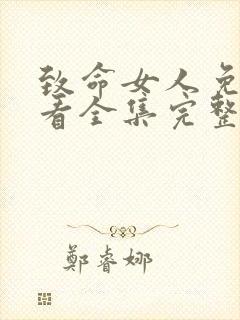 致命女人免
看全集完整
鄭睿娜